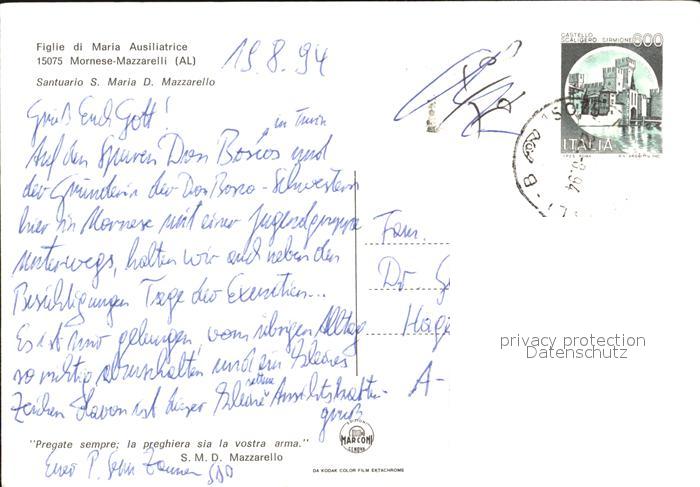 Figlie di Maria Ausiliatrice
15075 Mornese-Mazzarelli (AL)
Santuario S. Maria D. Mazzarello
19.8.94
CASTELLO
SCALIGERO SIRMIONE 600
ITALIA
Grüß Euch Gott!
in Turin
Auf den Spuren Don Boscos und
der Gründerin der Don Bosco-Schwestern
hier in Mornese mit einer Jugendgruppe
unterwegs, halten wir auch neben den
Besichtigungen Tage der Exerzitien...
Es ist uns gelungen, vom übrigen Alltag
so richtig abzuschalten und ein kleines
Zeichen davon ist dieser kleine nette Ansichtskarten-
gruß
Fam.
Dr. G
Hag
A-
privacy protection
Datenschutz
"Pregate sempre; la preghiera sia la vostra arma."
S. M. D. Mazzarello
Euer P. SDB
MARCONI
GENOVA
DA KODAK COLOR FILM EKTACHROME